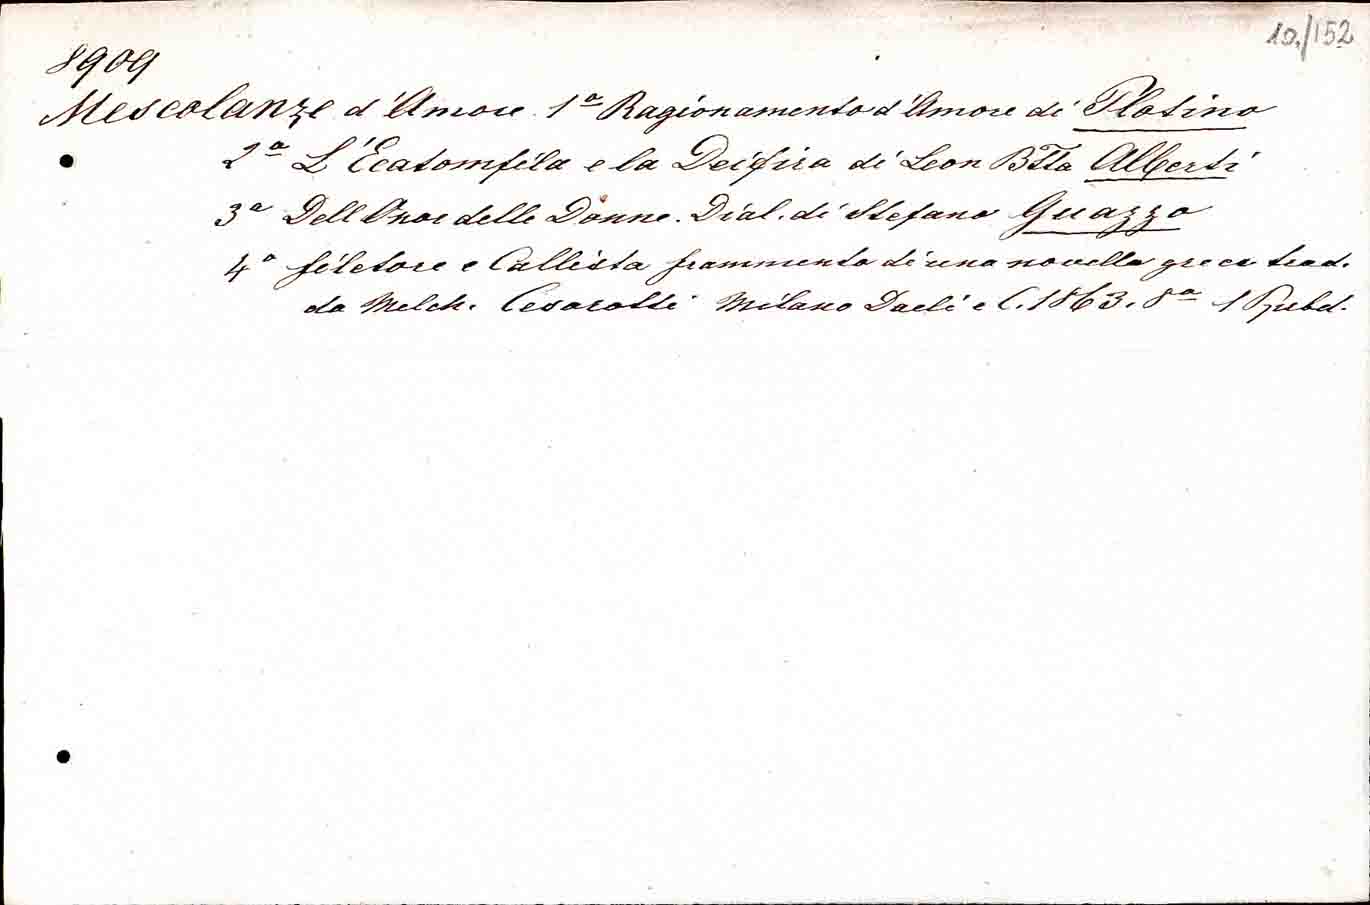 10./152
8909
Mescolanze d'Amore. 1ª Ragionamento d'Amore di Plotino
2ª L'Ecatomfila e la Deifira di Leon Btta Alberti
3ª Dell Onor delle Donne. Dial. di Stefano Guazzo
4ª filetore e Callista frammento di una novella greca trad.
da Melch. Cesarotti Milano Daeli e C. 1863. 8ª 1